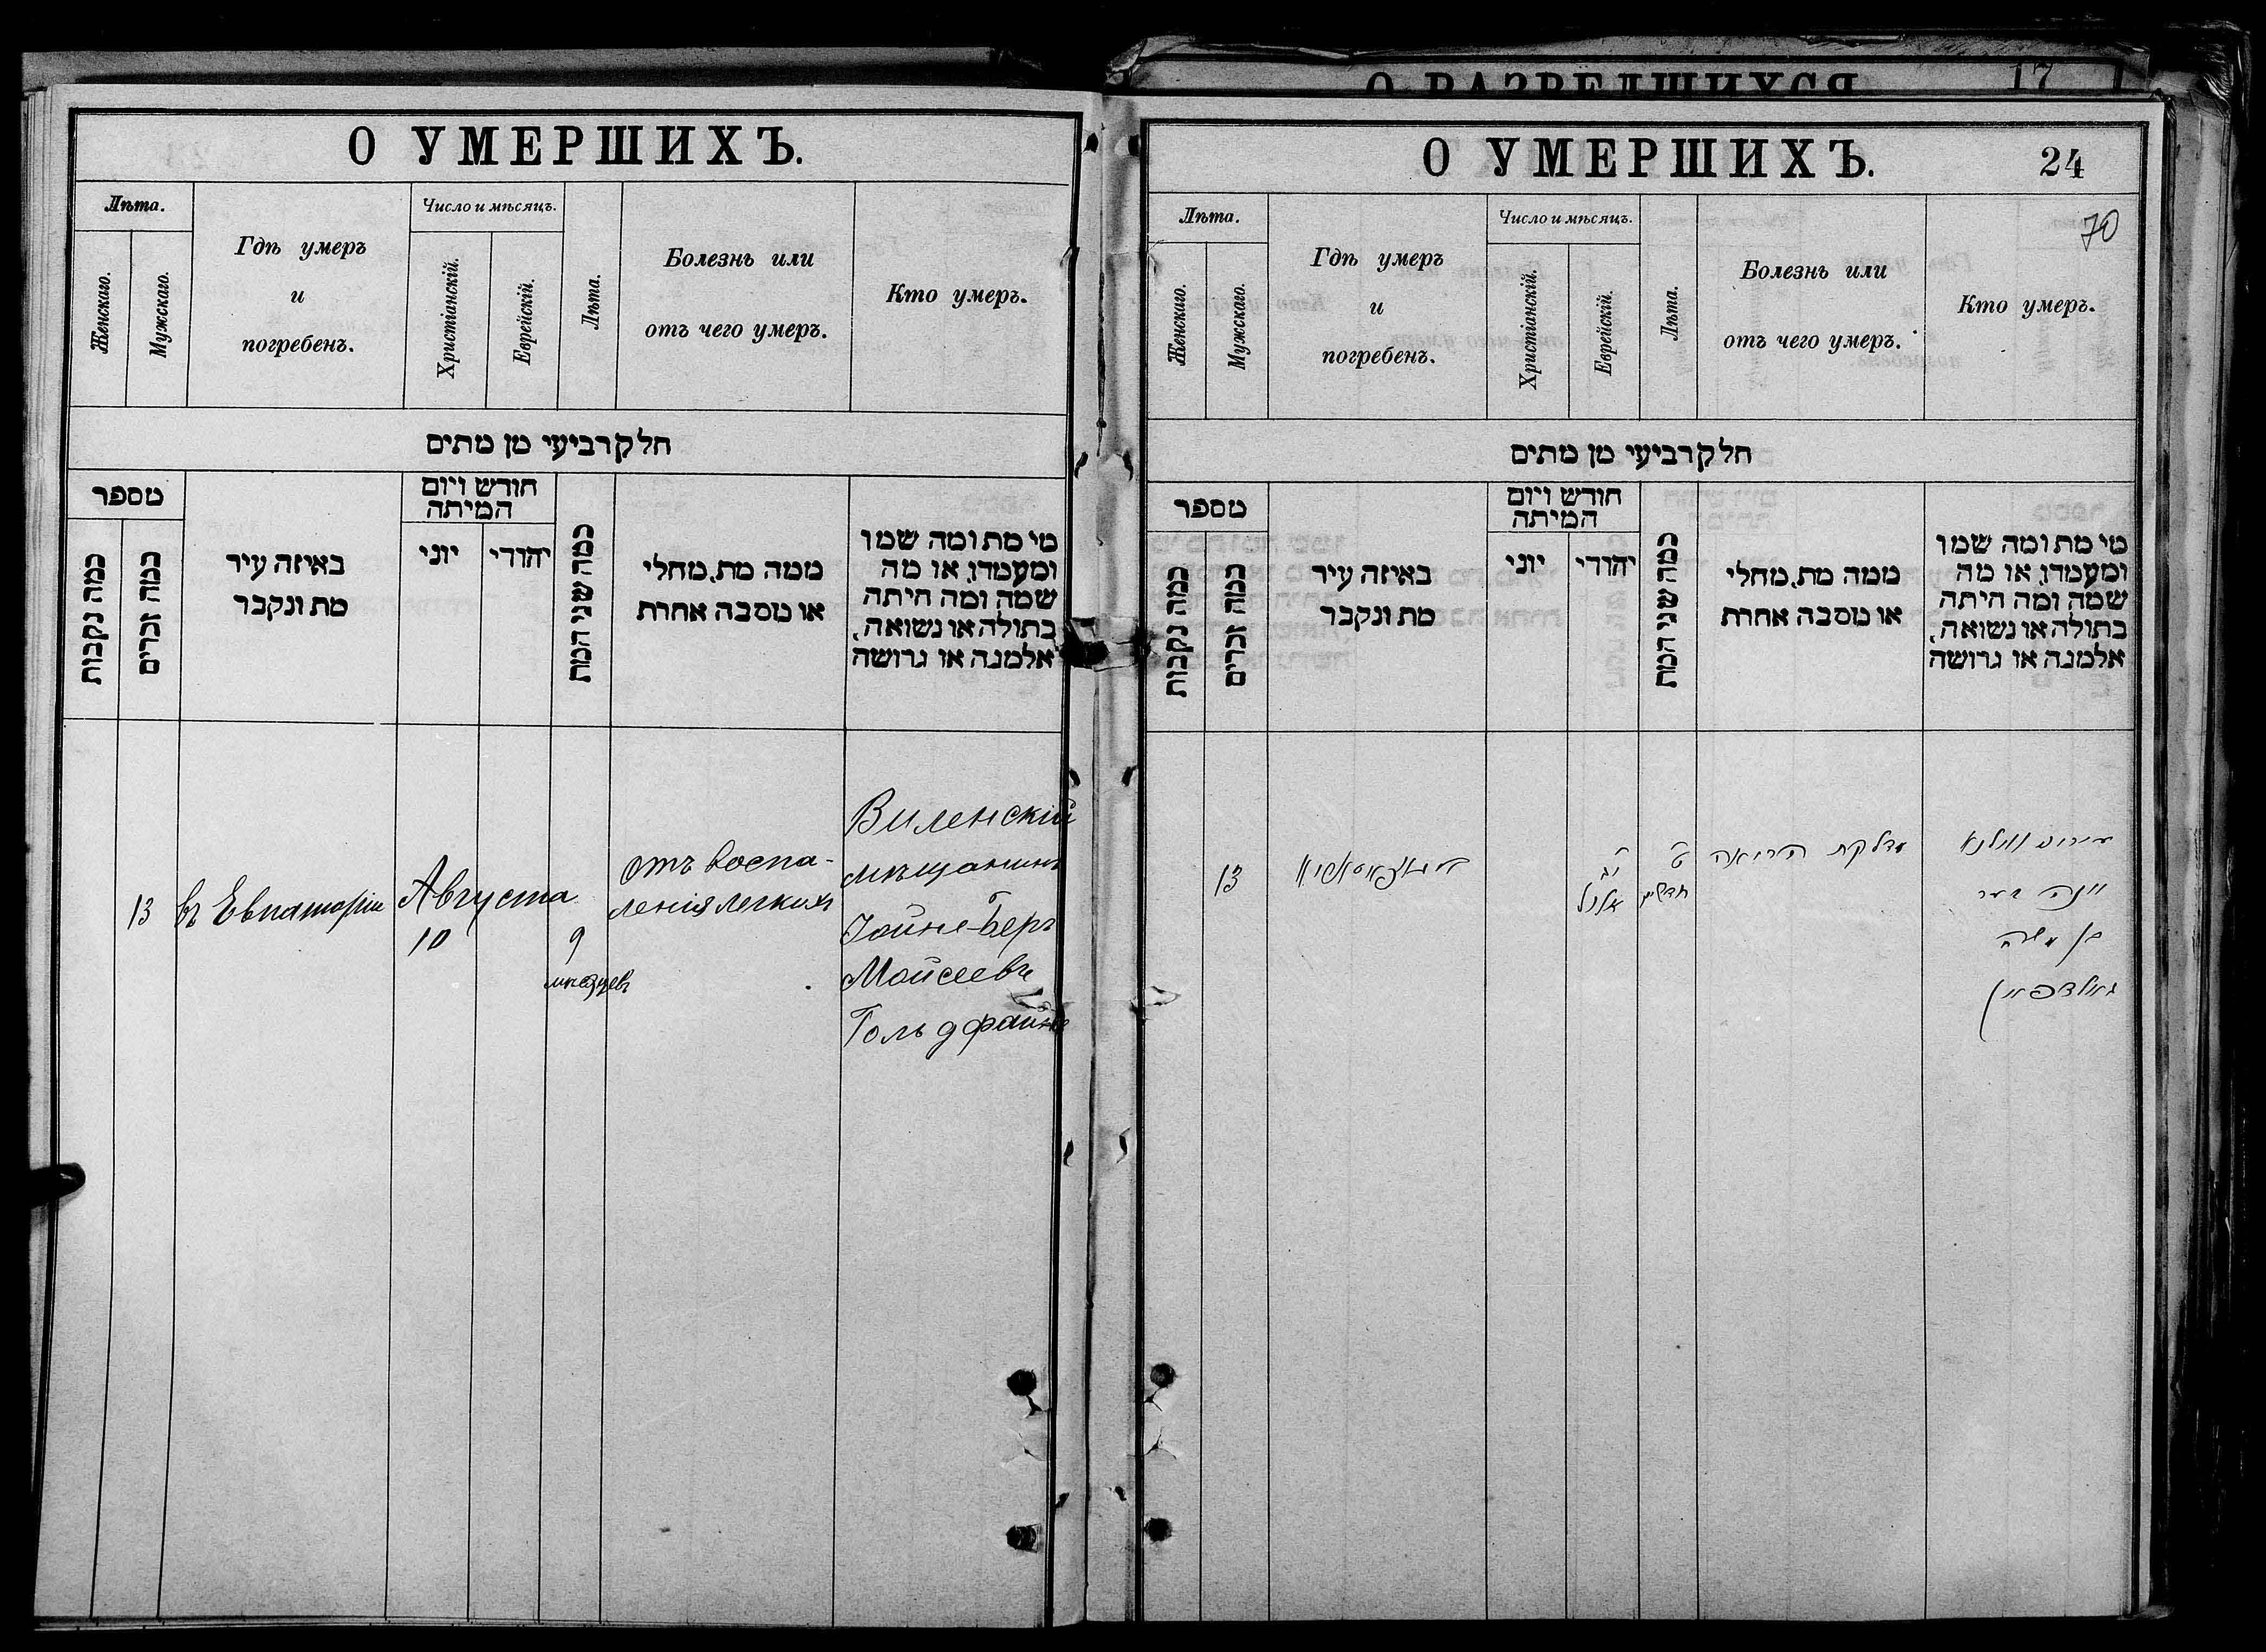 О РАЗВЕДШИХСЯ
17
О УМЕРШИХЪ.
Лѣта.
Женскаго.
Мужскаго.
Гдѣ умеръ
и
погребенъ.
Число и мѣсяцъ.
Христіанскій.
Еврейскій.
Лѣта.
Болезнь или
отъ чего умеръ.
Кто умеръ.
חלק רביעי מן מתים
מספר
כמה נקבות
כמה זכרים
באיזה עיר
מת ונקבר
חודש ויום
המיתה
יוני
יהודי
כמה שני המת
ממה מת, מחלי
או מסבה אחרת
מי מת ומה שמו
ומעמדו, או מה
שמה ומה היתה
בתולה או נשואה,
אלמנה או גרושה
13
въ Евпаторіи
Августа
10
9
мѣсяцевъ
отъ воспа-
ленія легкихъ
Виленскій
мѣщанинъ
Іойне-Беръ
Мойсеевъ
Гольдфайнъ
О УМЕРШИХЪ.
24
70
Лѣта.
Женскаго.
Мужскаго.
Гдѣ умеръ
и
погребенъ.
Число и мѣсяцъ.
Христіанскій.
Еврейскій.
Лѣта.
Болезнь или
отъ чего умеръ.
Кто умеръ.
חלק רביעי מן מתים
מספר
כמה נקבות
כמה זכרים
באיזה עיר
מת ונקבר
חודש ויום
המיתה
יוני
יהודי
כמה שני המת
ממה מת, מחלי
או מסבה אחרת
מי מת ומה שמו
ומעמדו, או מה
שמה ומה היתה
בתולה או נשואה,
אלמנה או גרושה
13
אלול
ט
חדשים
מדלקת הריאה
ווילנא
יונה בער
בן משה